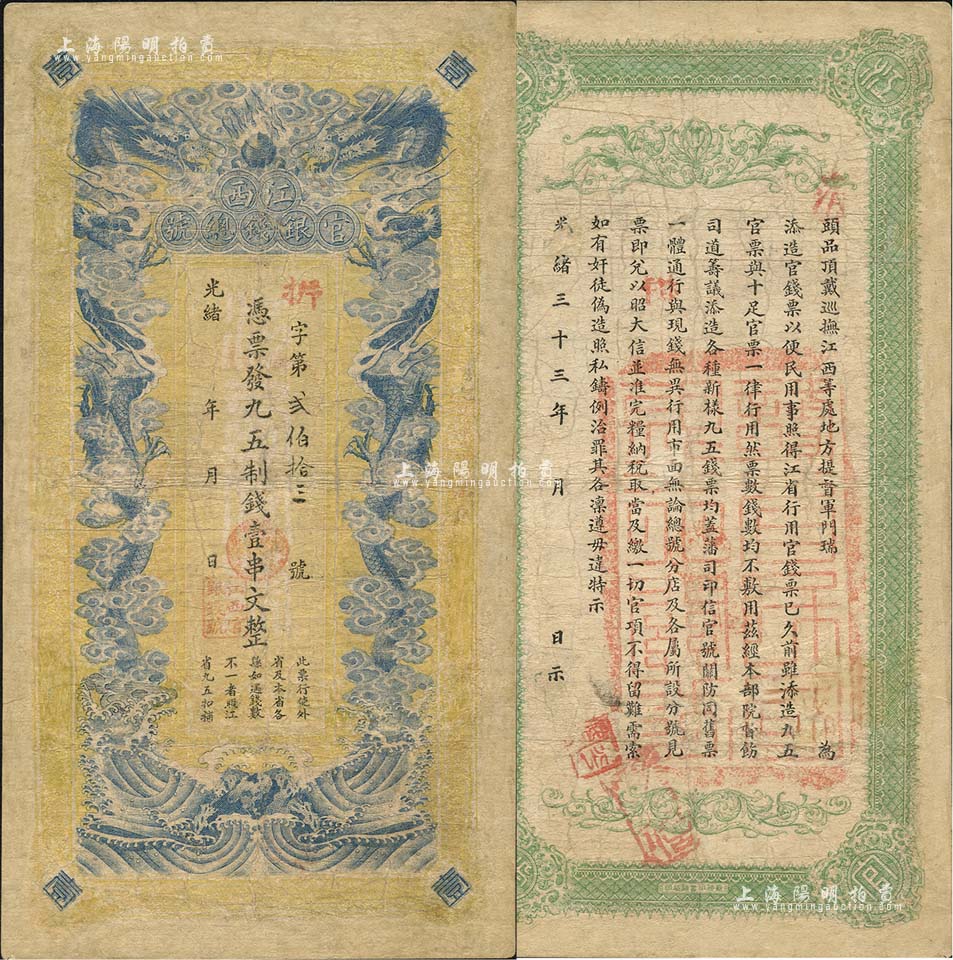 上海陽明拍賣
www.yangmingauction.com
壹
壹
江西
官銀錢總號
字第貳伯拾三號
憑票發九五制錢壹串文整
光緒 年 月 日
江西官
銀錢號
此票行使外
省及本省各
縣如遇錢數
不一者照江
省九五扣補
壹
壹
江
頭品頂戴巡撫江西等處地方提督軍門瑞 為
添造官錢票以便民用事照得江省行用官錢票已久前雖添造九五
官票與十足官票一律行用然票數錢數均不敷用茲經本部院督飭
司道籌議添造各種新樣九五錢票均蓋藩司印信官號關防同舊票
一體通行與現錢無異行用市面無論總號分店及各屬所設分號見
票即兌以昭大信並准完糧納稅取當及繳一切官項不得留難需索
如有奸徒偽造照私鑄例治罪其各凜遵毋違特示
光緒三十三年 月 日示
上海陽明拍賣
www.yangmingauction.com
上海陽明拍賣
www.yangmingauction.com